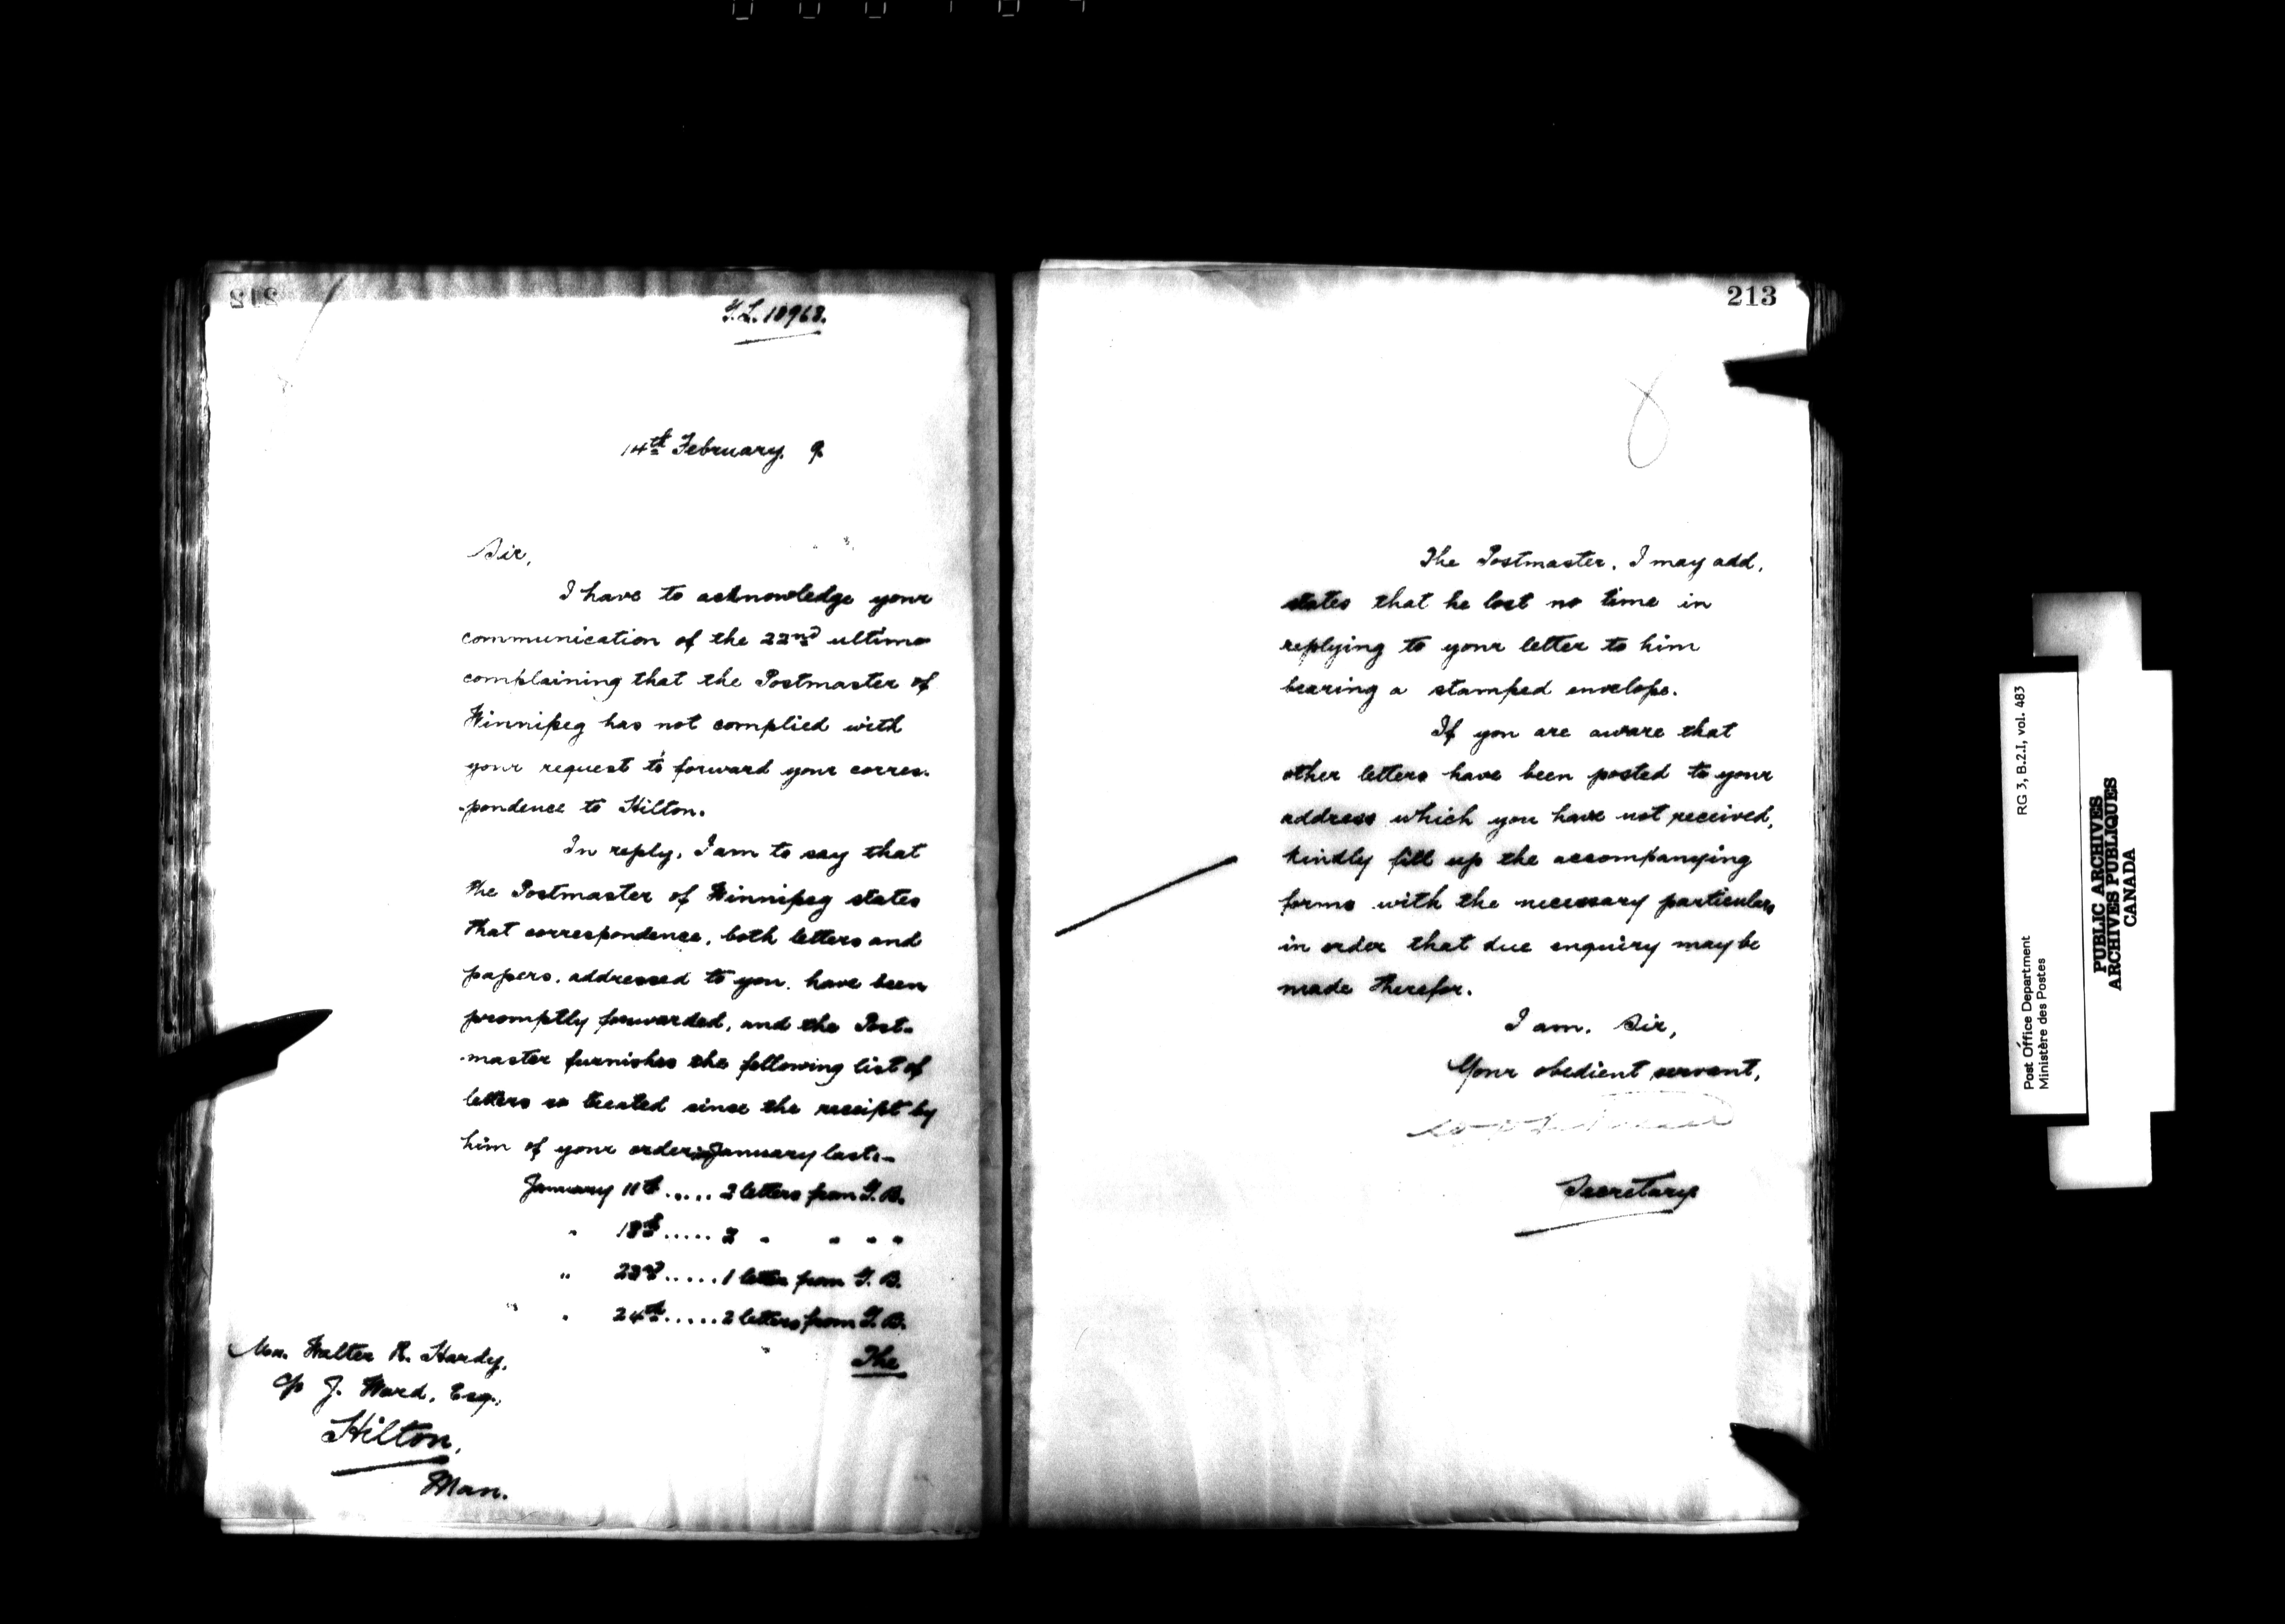 212
G.L. 10968.
14th February, 9
Sir,
I have to acknowledge your
communication of the 22nd ultimo
complaining that the Postmaster of
Winnipeg has not complied with
your request to forward your corres-
-pondence to Hilton.
In reply, I am to say that
the Postmaster of Winnipeg states
that correspondence, both letters and
papers, addressed to you, have been
promptly forwarded, and the Post-
-master furnishes the following list of
letters so treated since the receipt by
him of your order in January last:-
January 11th ..... 2 letters from G.B.
" 18th ..... 2 " " " "
" 23rd ..... 1 letter from G.B.
" 24th ..... 2 letters from G.B.
The
Mr. Walter R. Hardy,
c/o J. Ward, Esq.,
Hilton,
Man.
213
8
The Postmaster, I may add,
states that he lost no time in
replying to your letter to him
bearing a stamped envelope.
If you are aware that
other letters have been posted to your
address which you have not received,
kindly fill up the accompanying
forms with the necessary particulars
in order that due enquiry may be
made therefor.
I am, Sir,
Your obedient servant,
Secretary
Post Office Department RG 3, B.2.I, vol. 483
Ministère des Postes
PUBLIC ARCHIVES
ARCHIVES PUBLIQUES
CANADA